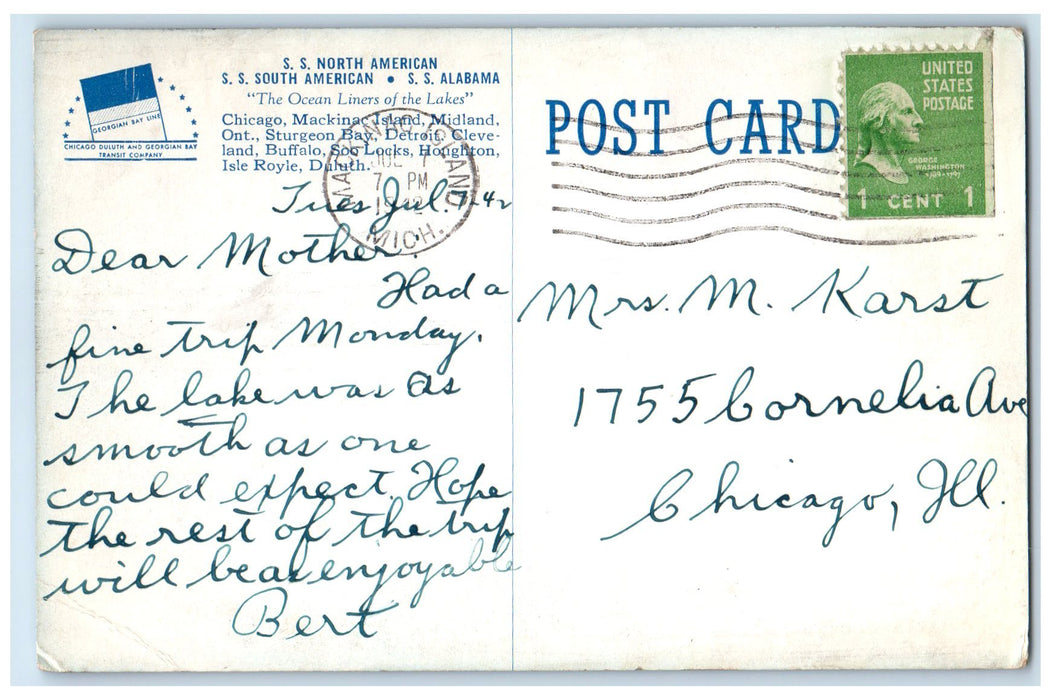 S. S. NORTH AMERICAN
S. S. SOUTH AMERICAN • S. S. ALABAMA
"The Ocean Liners of the Lakes"
Chicago, Mackinac Island, Midland,
Ont., Sturgeon Bay, Detroit, Cleve-
land, Buffalo, Soo Locks, Houghton,
Isle Royle, Duluth.
GEORGIAN BAY LINE
CHICAGO DULUTH AND GEORGIAN BAY
TRANSIT COMPANY
MACKINAC ISLAND
JUL 7
7 PM
MICH.
Tues Jul. 7-42
Dear Mother.
Had a
fine trip Monday.
The lake was as
smooth as one
could expect. Hope
the rest of the trip
will be as enjoyable
Bert
POST CARD
UNITED
STATES
POSTAGE
GEORGE
WASHINGTON
1789-1797
1 CENT 1
Mrs. M. Karst
1755 Cornelia Ave
Chicago, Ill.